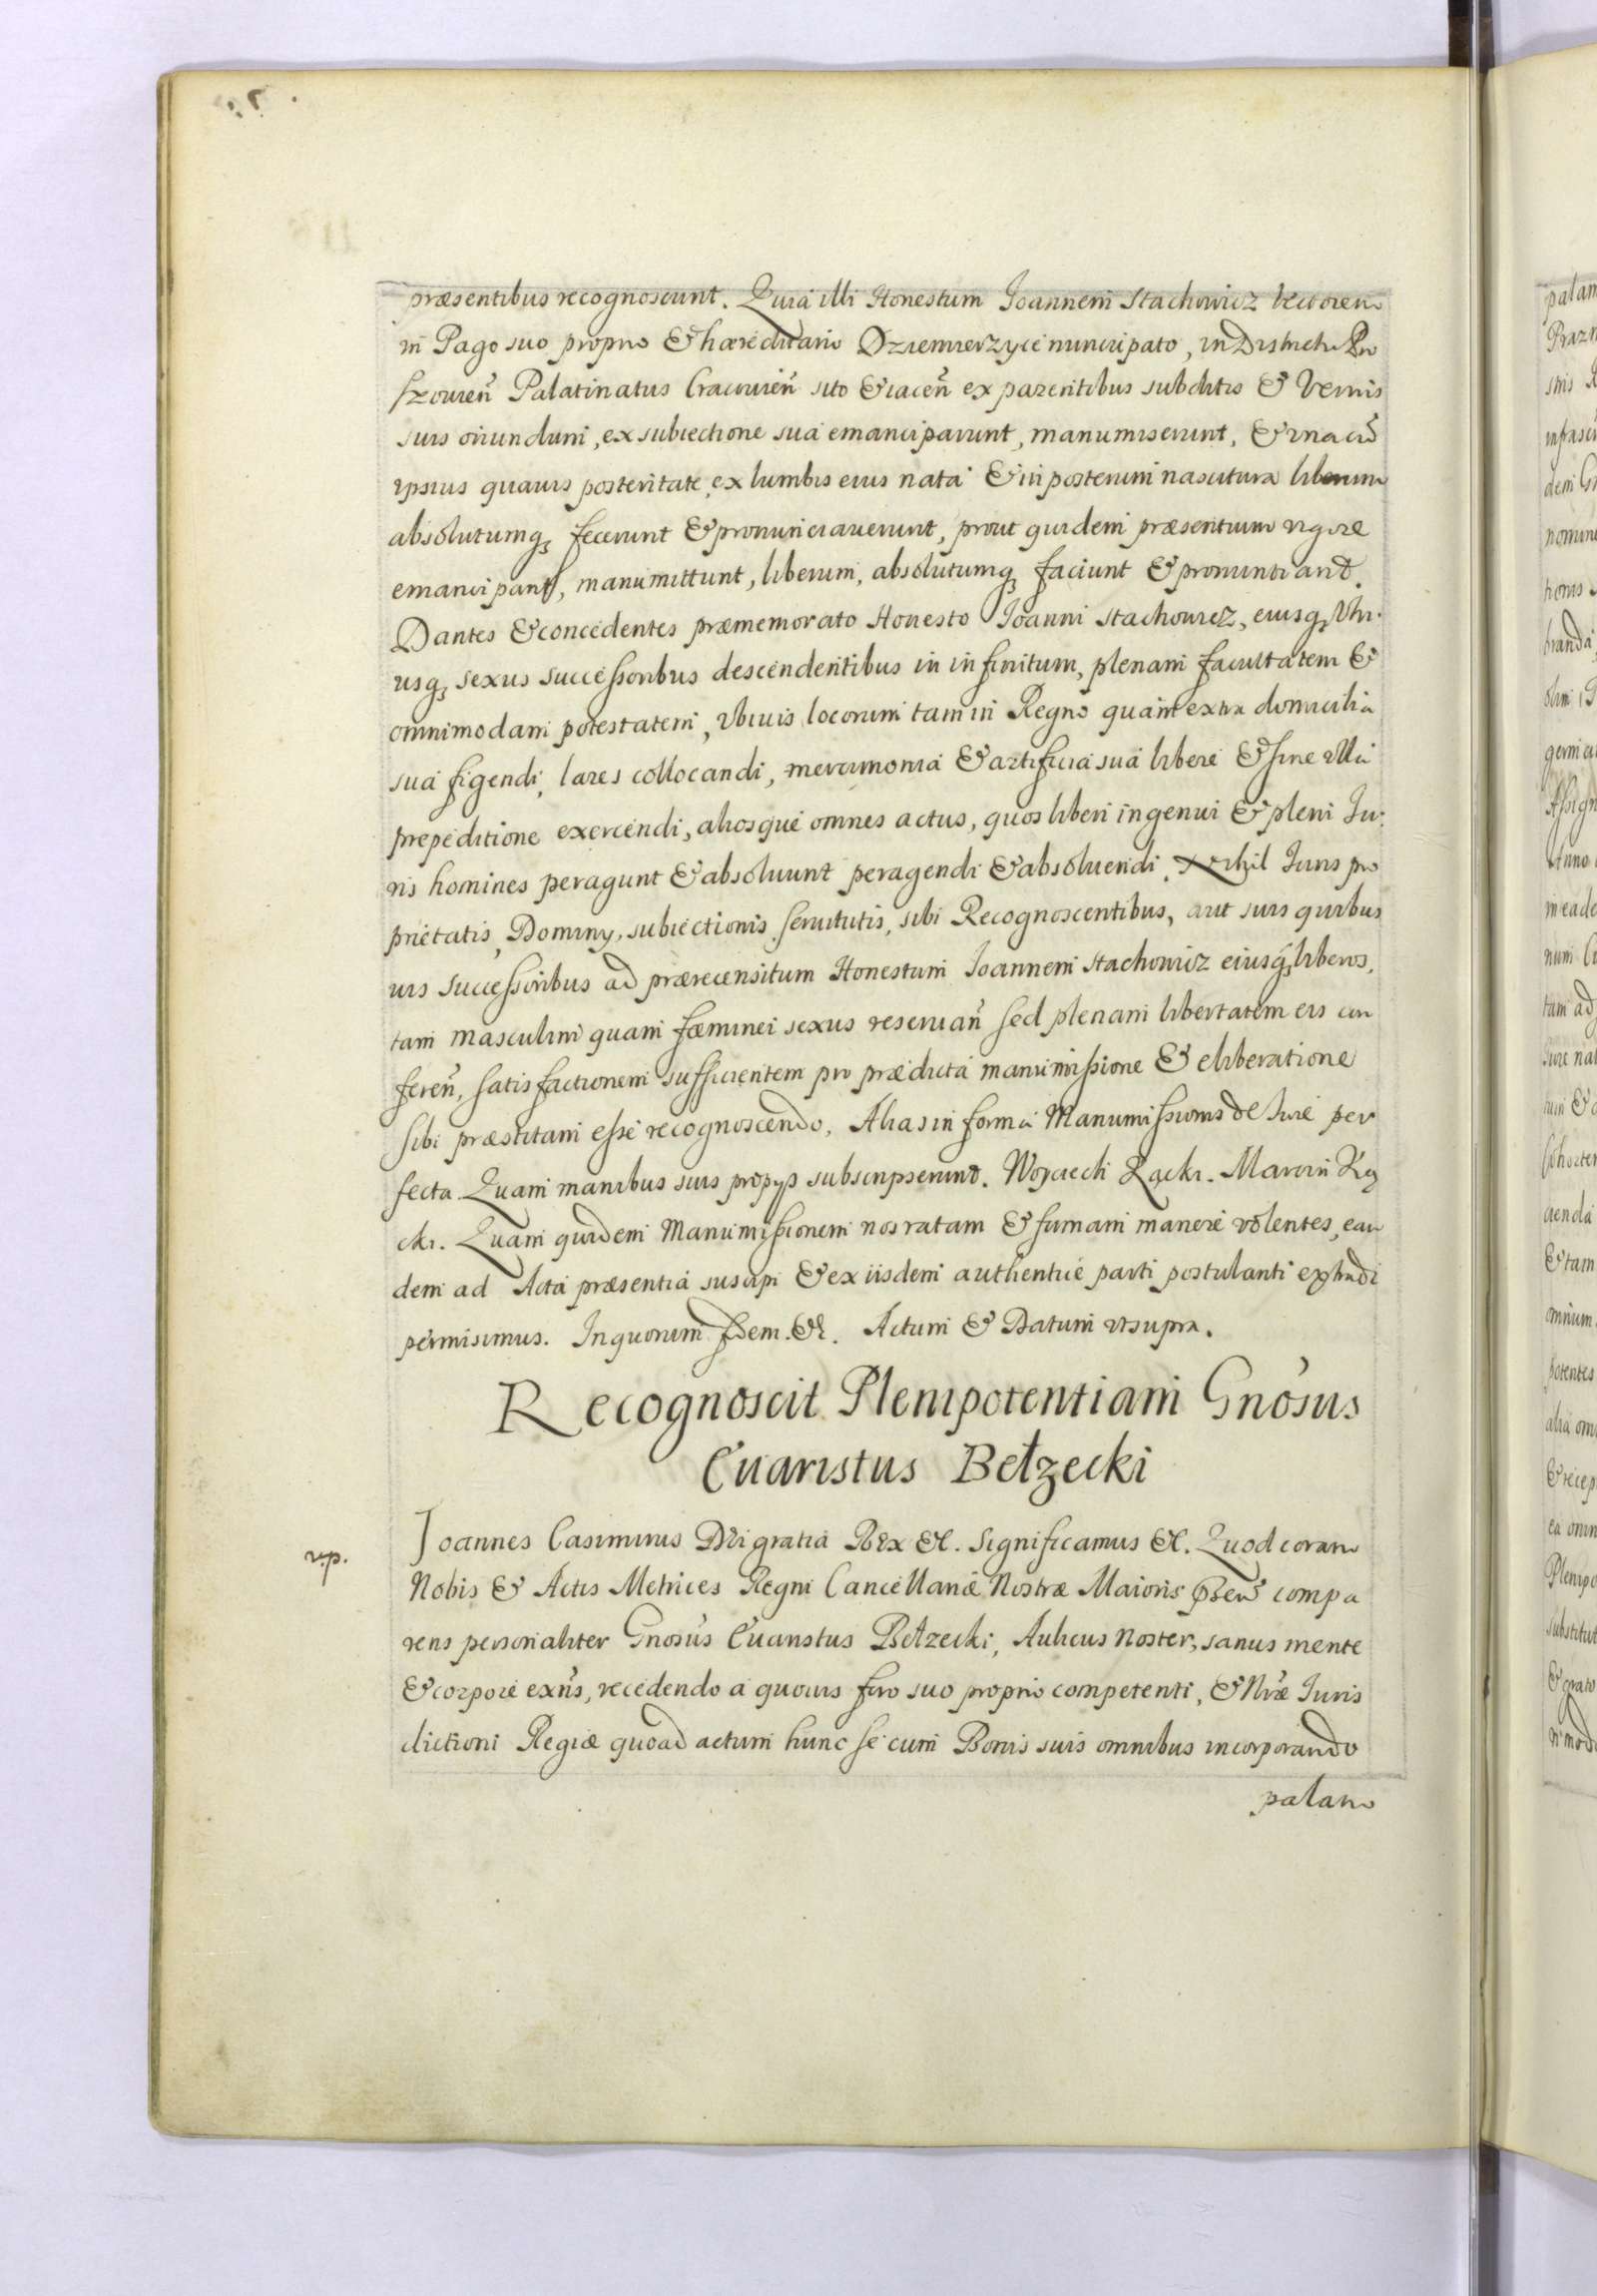 præsentibus recognoscunt. Quia illi Honestum Joannem Stachowicz vectorem
in Pago suo proprio & hæreditario Dziemierzyce nuncupato, in Districtu Pro
szouień Palatinatus Cracouień sito & iaceń ex parentibus subditis & Vernis
suis oriundum, ex subiectione sua emanciparunt, manumiserunt, & una cũ
ipsius quauis posteritate, ex lumbis eius nata & in posterum nascitura liberum
absolutumq fecerunt & pronunciauerunt, prout quidem præsentium vigore
emancipant, manumittunt, liberum, absolutumq faciunt & pronuntiant.
Dantes & concedentes præmemorato Honesto Joanni Stachowicz, eiusq Utri
usq sexus successoribus descendentibus in infinitum, plenam facultatem &
omnimodam potestatem, Ubiuis locorum tam in Regno quam extra domicilia
sua figendi, lares collocandi, mercimonia & artificia sua libere & sine ulla
prepeditione exercendi, aliosque omnes actus, quos liberi ingenui & pleni Ju
ris homines peragunt & absoluunt peragendi & absoluendi. Nihil Juris pro
prietatis, Dominy, subiectionis seruitutis, sibi Recognoscentibus, aut suis quibus
uis successoribus ad prærecensitum Honestum Joannem Stachowicz eiusq liberos,
tam masculini quam fæminei sexus reseruań sed plenam libertatem eis con
fereń, satisfactionem sufficientem pro prædicta manumissione & eliberatione
sibi præstitam esse recognoscendo, Alias in forma Manumissionis de Jure per
fecta. Quam manibus suis propys subscripserunt. Woyciech Rącki. Marcin Rą
cki. Quam quidem Manumissionem nos ratam & firmam manere volentes, ean
dem ad Acta præsentia suscipi & ex iisdem authentice parti postulanti extradi
permisimus. In quorum fidem. &c. Actum & Datum ut supra.
Recognoscit Plenipotentiam Gnosus
Euaristus Bełzecki
rp.
Joannes Casimirus Dei gratia Rex &c. Significamus &c. Quod coram
Nobis & Actis Metrices Regni Cancellariæ Nostræ Maioris Pñs compa
rens personaliter Gnosus Euaristus Bełzecki, Aulicus Noster, sanus mente
& corpore exñs, recedendo a quouis foro suo proprio competenti, & Nræ Juris
dictioni Regiæ quoad actum hunc se cum Bonis suis omnibus incorporando
palam